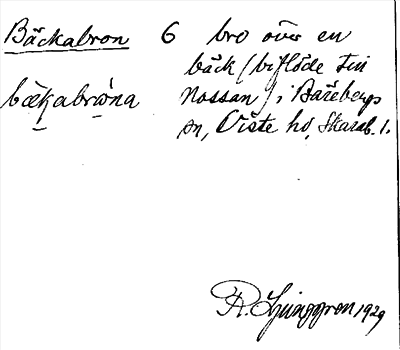 Bäckabron 6 bro över en
bäck (biflöde till
bækabròna Nossan) i Bärebergs
sn, Viste hd, Skarab. l.
R. Ljunggren 1929